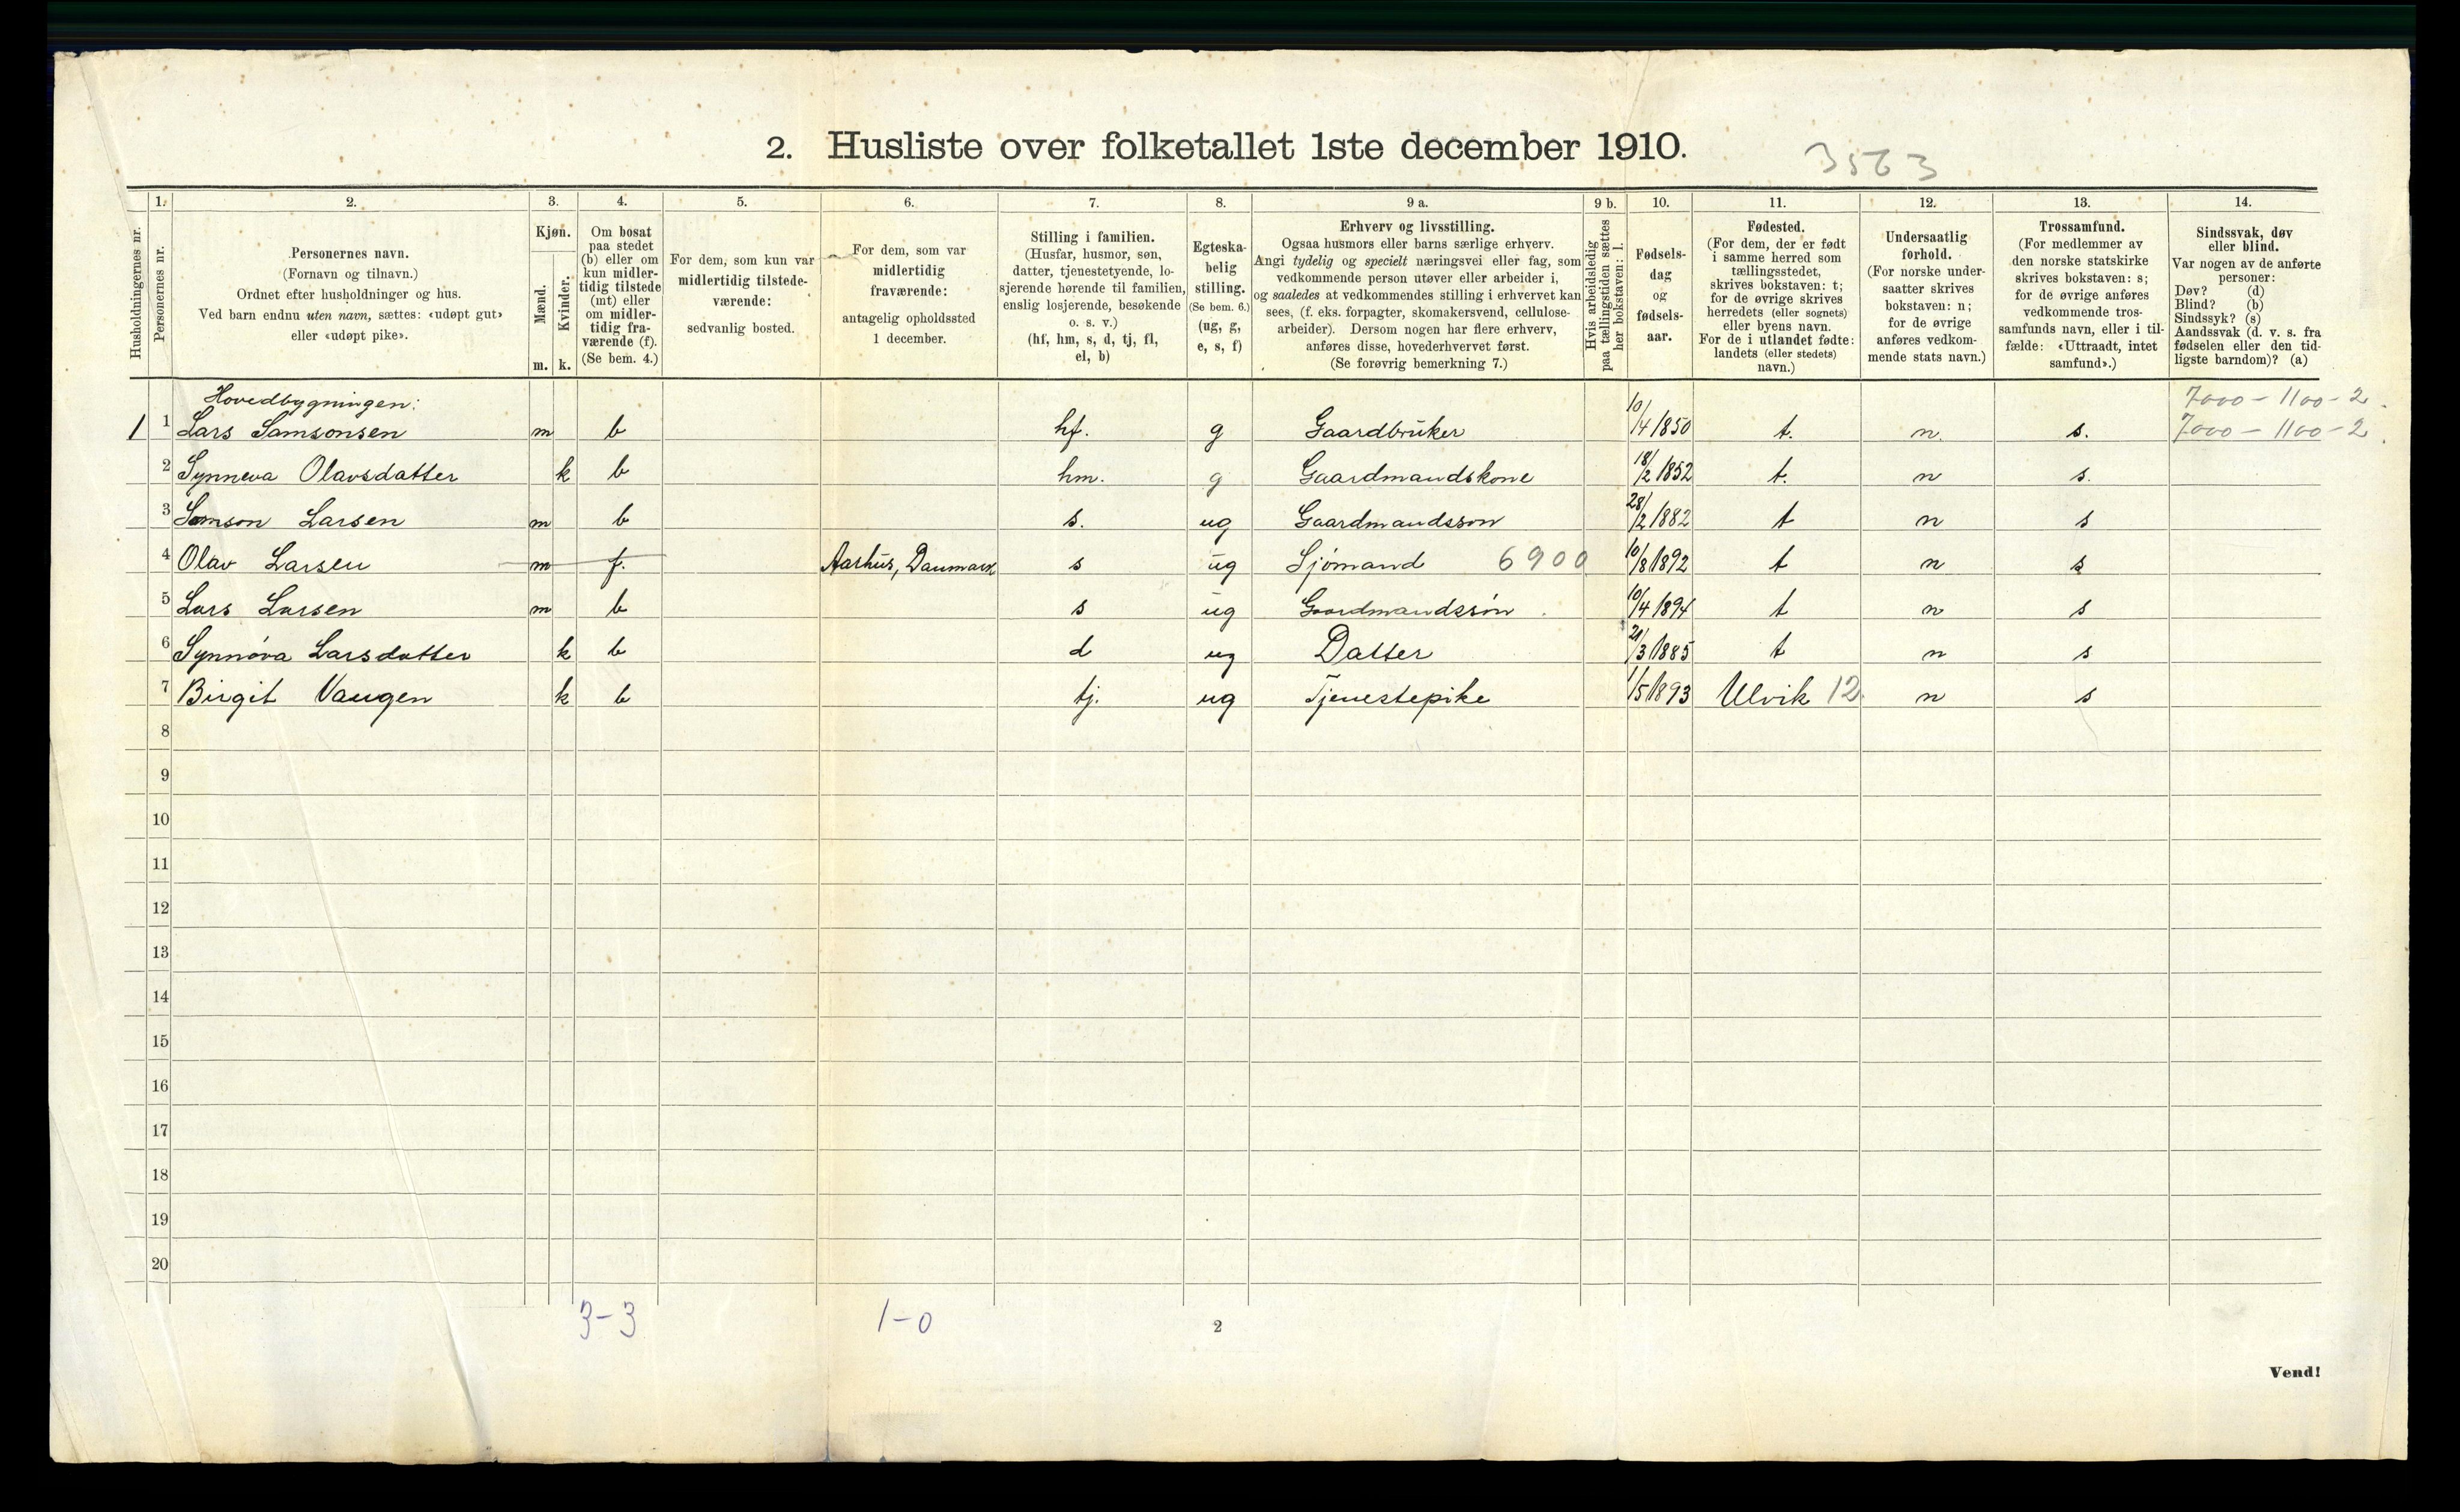 2. Husliste over folketallet 1ste december 1910.
3563
1. 2. 3. 4. 5. 6. 7. 8. 9 a. 9 b. 10. 11. 12. 13. 14.
Husholdningernes nr.
Personernes nr.
Personernes navn.
(Fornavn og tilnavn.)
Ordnet efter husholdninger og hus.
Ved barn endnu uten navn, sættes: «udøpt gut»
eller «udøpt pike».
Kjøn.
Mænd.
Kvinder.
m. k.
Om bosat
paa stedet
(b) eller om
kun midler-
tidig tilstede
(mt) eller
om midler-
tidig fra-
værende (f).
(Se bem. 4.)
For dem, som kun var
midlertidig tilstede-
værende:
sedvanlig bosted.
For dem, som var
midlertidig
fraværende:
antagelig opholdssted
1 december.
Stilling i familien.
(Husfar, husmor, søn,
datter, tjenestetyende, lo-
sjerende hørende til familien,
enslig losjerende, besøkende
o. s. v.)
(hf, hm, s, d, tj, fl,
el, b)
Egteska-
belig
stilling.
(Se bem. 6.)
(ug, g,
e, s, f)
Erhverv og livsstilling.
Ogsaa husmors eller barns særlige erhverv.
Angi tydelig og specielt næringsvei eller fag, som
vedkommende person utøver eller arbeider i,
og saaledes at vedkommendes stilling i erhvervet kan
sees, (f. eks. forpagter, skomakersvend, cellulose-
arbeider). Dersom nogen har flere erhverv,
anføres disse, hovederhvervet først.
(Se forøvrig bemerkning 7.)
Hvis arbeidsledig
paa tællingstiden sættes
her bokstaven: l.
Fødsels-
dag
og
fødsels-
aar.
Fødested.
(For dem, der er født
i samme herred som
tællingsstedet,
skrives bokstaven: t;
for de øvrige skrives
herredets (eller sognets)
eller byens navn.
For de i utlandet fødte:
landets (eller stedets)
navn.)
Undersaatlig
forhold.
(For norske under-
saatter skrives
bokstaven: n;
for de øvrige
anføres vedkom-
mende stats navn.)
Trossamfund.
(For medlemmer av
den norske statskirke
skrives bokstaven: s;
for de øvrige anføres
vedkommende tros-
samfunds navn, eller i til-
fælde: «Uttraadt, intet
samfund».)
Sindssvak, døv
eller blind.
Var nogen av de anførte
personer:
Døv? (d)
Blind? (b)
Sindssyk? (s)
Aandssvak (d. v. s. fra
fødselen eller den tid-
ligste barndom)? (a)
Hovedbygningen: 7000 - 1100 - 2
1 1 Lars Samsonsen m b hf. g Gaardbruker 10/4 1850 t. n. s. 7000 - 1100 - 2
2 Synneva Olavsdatter k b hm. g Gaardmandskone 18/2 1852 t. n s.
3 Samson Larsen m b s. ug Gaardmandsson 28/2 1882 t n s
4 Olav Larsen m f. Aarhus, Danmark s ug Sjømand 6900 10/8 1892 t n s
5 Lars Larsen m b s ug Gaardmandssøn 10/4 1894 t n s
6 Synnøva Larsdatter k b d ug Datter 21/3 1885 t n s
7 Birgit Vangen k b tj. ug Tjenestepike 1/5 1893 Ulvik 12. n s
8
9
10
11
12
13
14
15
16
17
18
19
20
3-3 1-0
2
Vend!